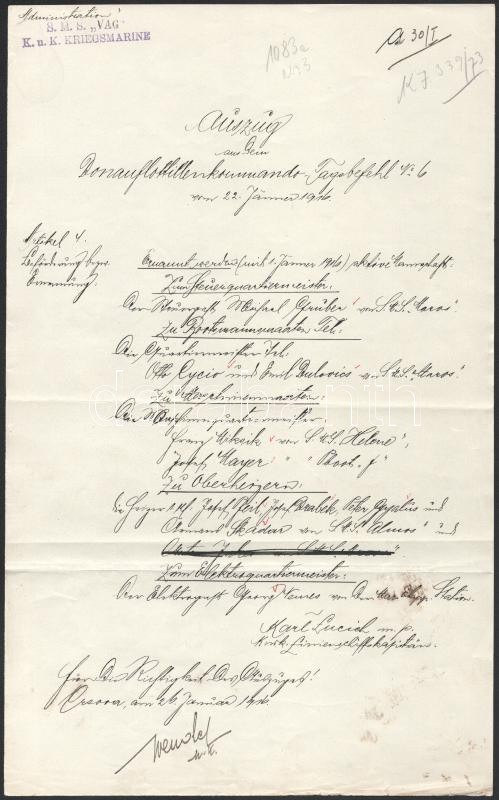 Administration
S.M.S. „VAG"
K. u. K. KRIEGSMARINE
1083a
30/I
KJ 339/73
Auszug
aus dem
Donauflottillenkommando-Tagsbefehl No 6
vom 22. Jänner 1916.
Artikel 4.
Beförderung bezw.
Ernennung:
Ernannt werden (mit 1. Jänner 1916) aktive Mannschaft:
Zum Steuerquartiermeister:
Der Steuergast Michael Gruber von S.M.S. „Maros".
Zu Bootsmannsmaaten Tel:
Die Quartiermeister Tel:
Otto Cycio und Emil Dulovics von S.M.S. „Maros".
Zu Maschinenmaaten:
Die Maschinenquartiermeister:
Franz von S.M.S. „Helene",
Josef Mayer " " Pboot „J"
Zu Oberheizern:
Die Heizer 1. Kl. Josef Josef Drabek, Peter und
Skadar von S.M.S. „Almos" und
Zum Elektroquartiermeister:
Der Elektrogast Georg von der Station.
Karl Lucich m.p.
k.u.k. Linienschiffskapitän.
Für die Richtigkeit des Auszuges!
Orsova, am 26. Januar 1916.